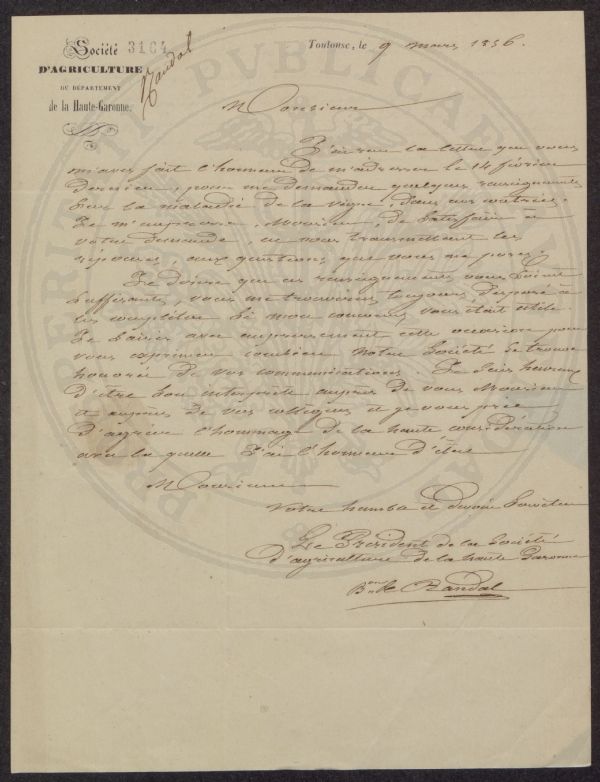 Société 3164
D'AGRICULTURE
DU DÉPARTEMENT
de la Haute-Garonne.
Randal
Toulouse, le 9 mars 1856.
Monsieur
J'ai reçu la lettre que vous
m'avez fait l'honneur de m'adresser le 14 février
dernier, pour me demander quelques renseignements
sur la maladie de la vigne, dans nos contrées.
Je m'empresse, Monsieur, de satisfaire à
votre demande, en vous transmettant les
réponses, aux questions que vous me posez.
Je désire que ces renseignements vous soient
suffisants, vous me trouverez toujours disposé à
les compléter si mon concours vous était utile.
Je saisis avec empressement cette occasion pour
vous exprimer combien notre Société se trouve
honorée de vos communications. Je suis heureux
d'être son interprète auprès de vous Monsieur
et auprès de vos collègues et je vous prie
d'agréer l'hommage de la haute considération
avec la quelle J'ai l'honneur d'être
Monsieur
Votre humble et dévoué Serviteur
Le Président de la Société
d'agriculture de la haute Garonne
Bon de Randal
PUBLICAE